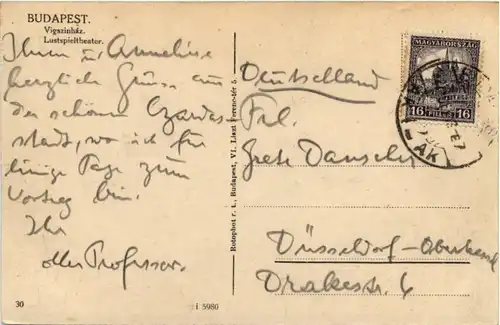 BUDAPEST.
Vigszinház.
Lustspieltheater.
Ihnen u. Anneliese
herzliche Grüsse aus
der schönen Czardas-
stadt, wo ich für
einige Tage zum
Vortrag bin.
Ihr
alter Professor.
30
i 5980
Rotophot r. t., Budapest, VI. Liszt Ferenc-tér 5.
MAGYARORSZÁG
16 FILLÉR 16
Deutschland
Frl.
Grete
Düsseldorf-Oberkassel
Drakestr. 6